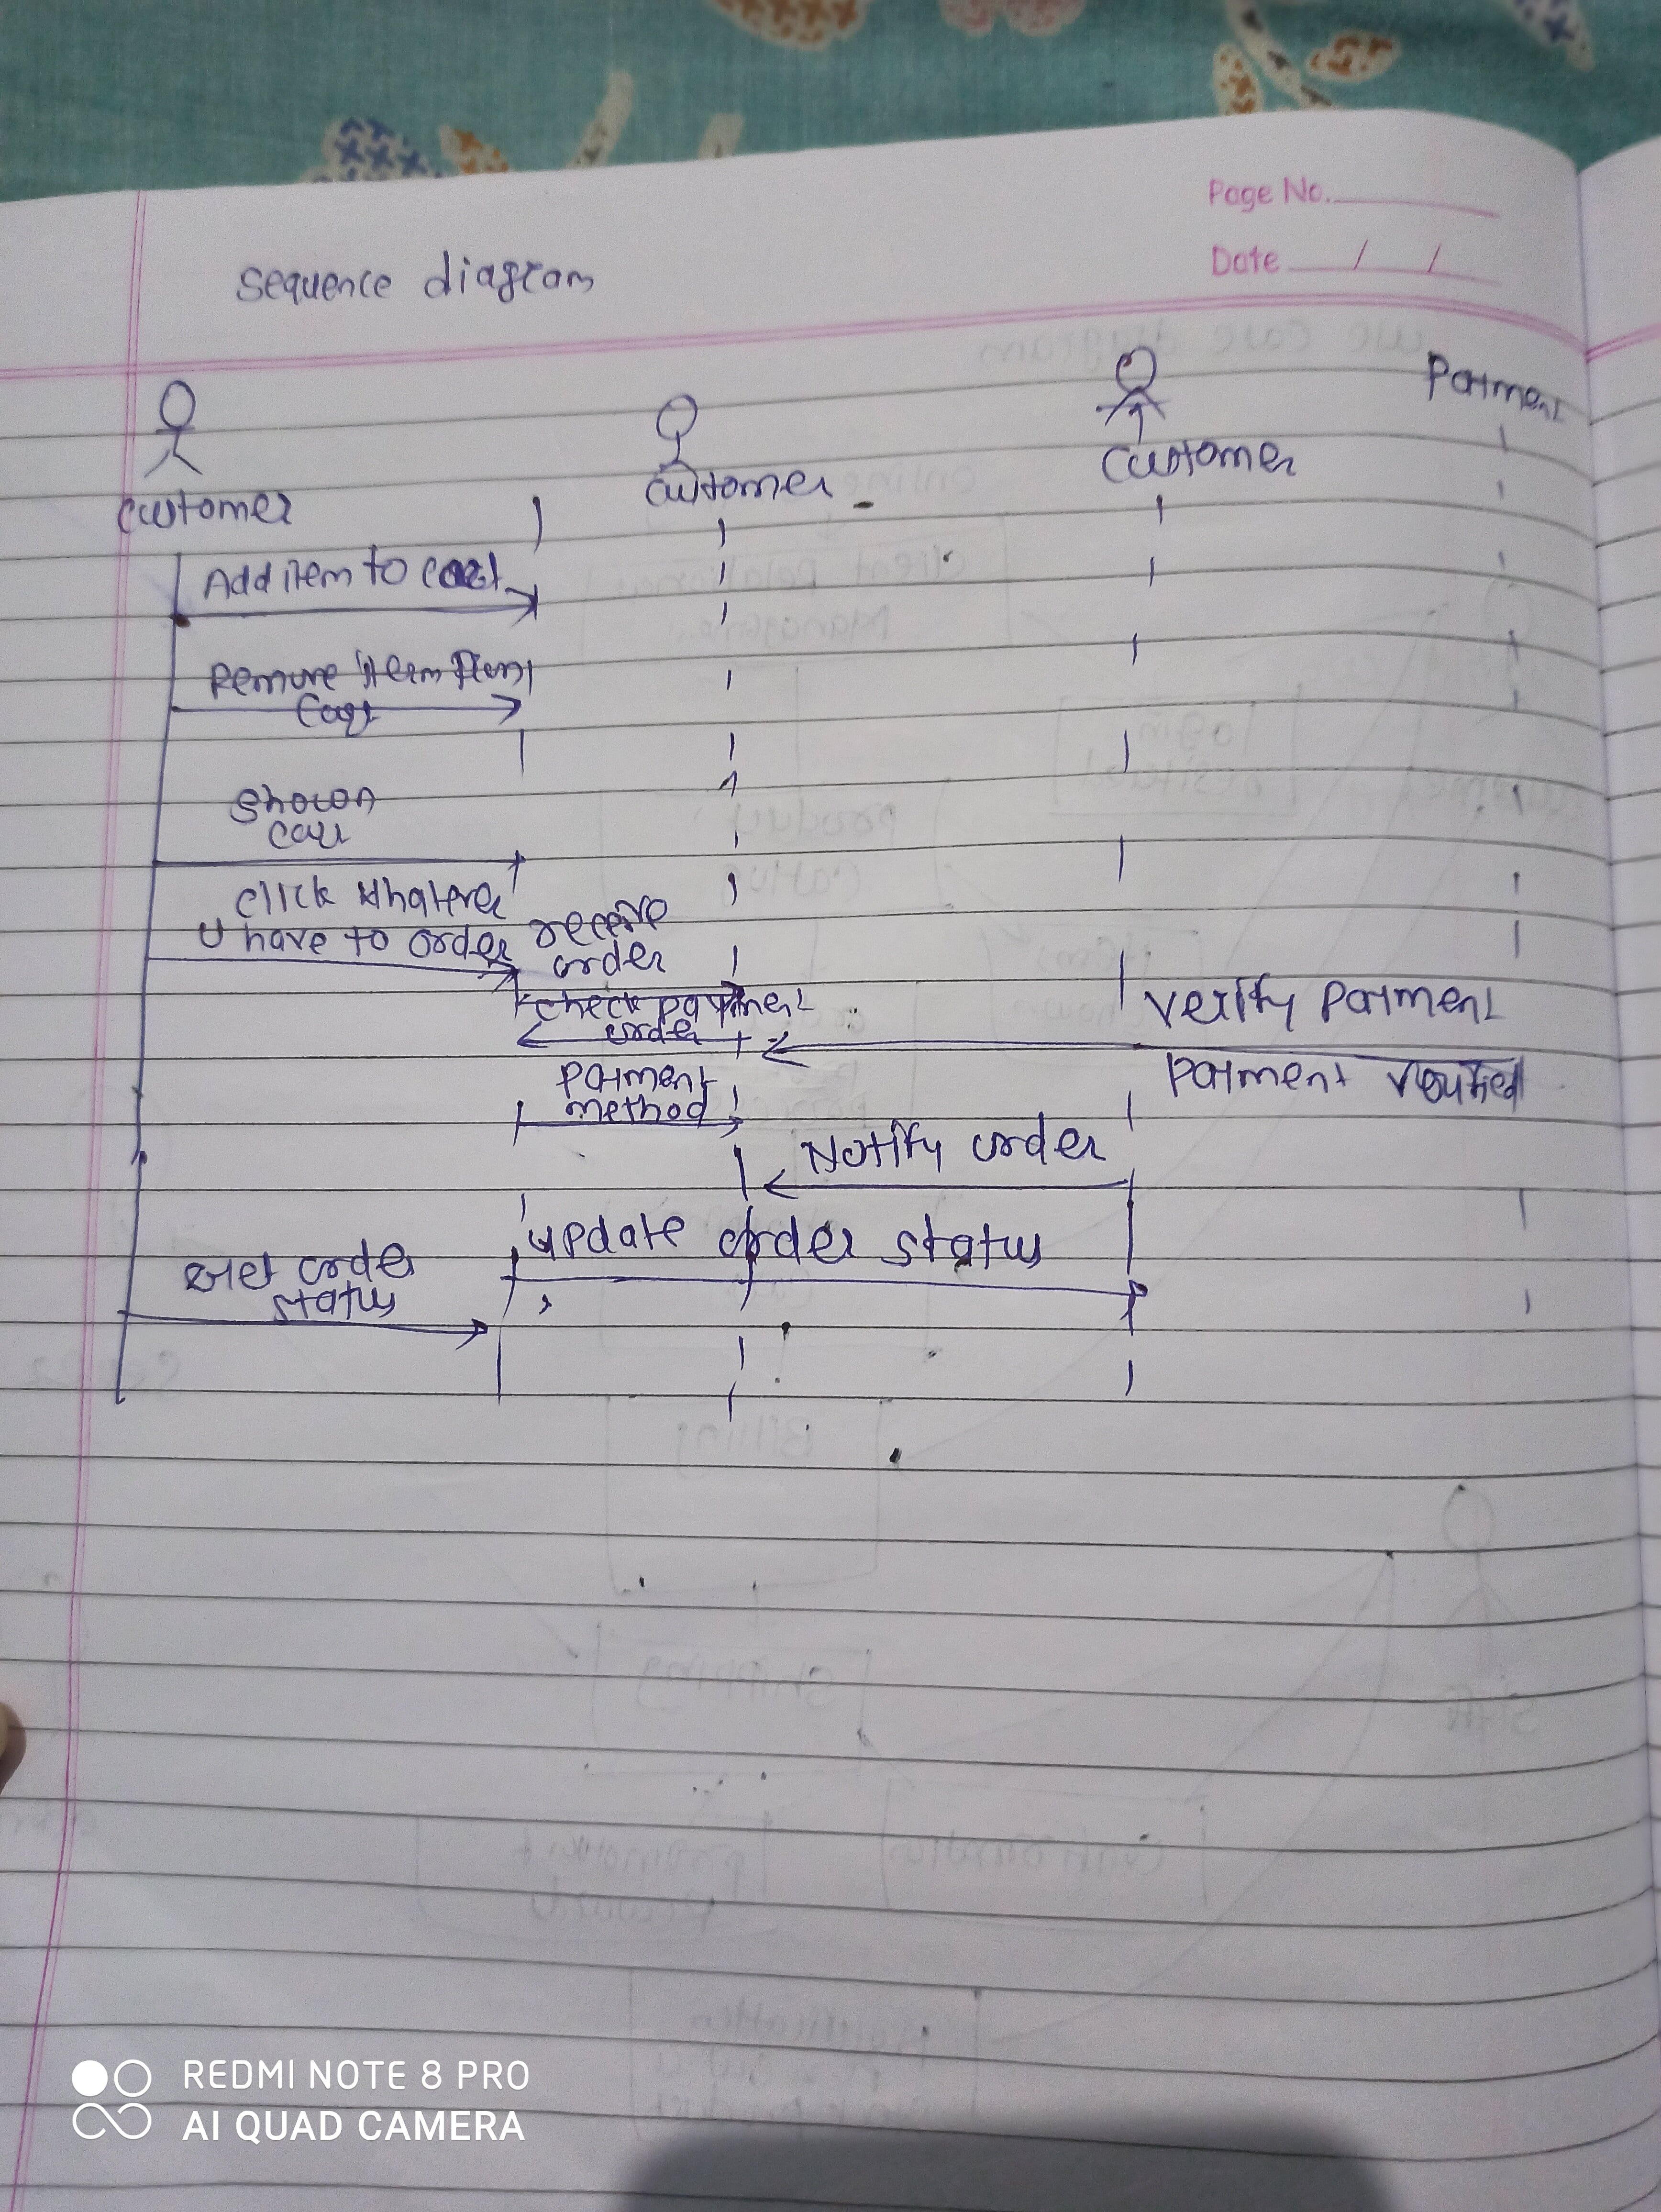 Page No.
Date / /
Sequence diagram
Patment
customer
customer
customer
Add item to cart
Remove item from
Cart
Shown
cart
click whatever
U have to order
receive
order
check payment
order
verify patment
patment verified
patment
method
Notify order
update order status
order
status
REDMI NOTE 8 PRO
AI QUAD CAMERA